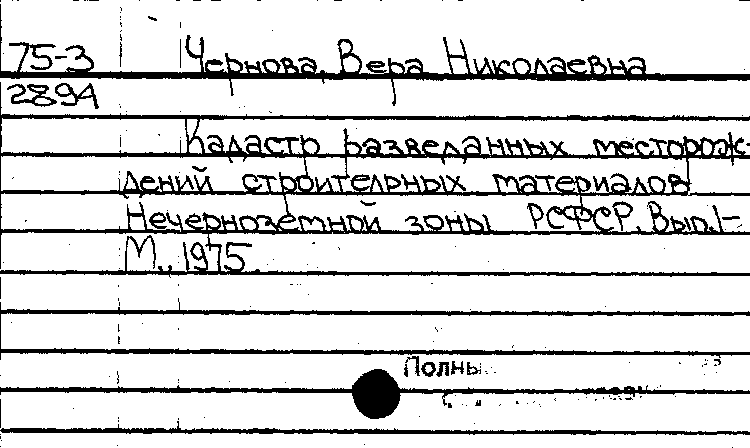 75-3 Чернова, Вера Николаевна
2894
Кадастр разведанных месторож-
дений строительных материалов
Нечерноземной зоны РСФСР. Вып.1-
М., 1975.